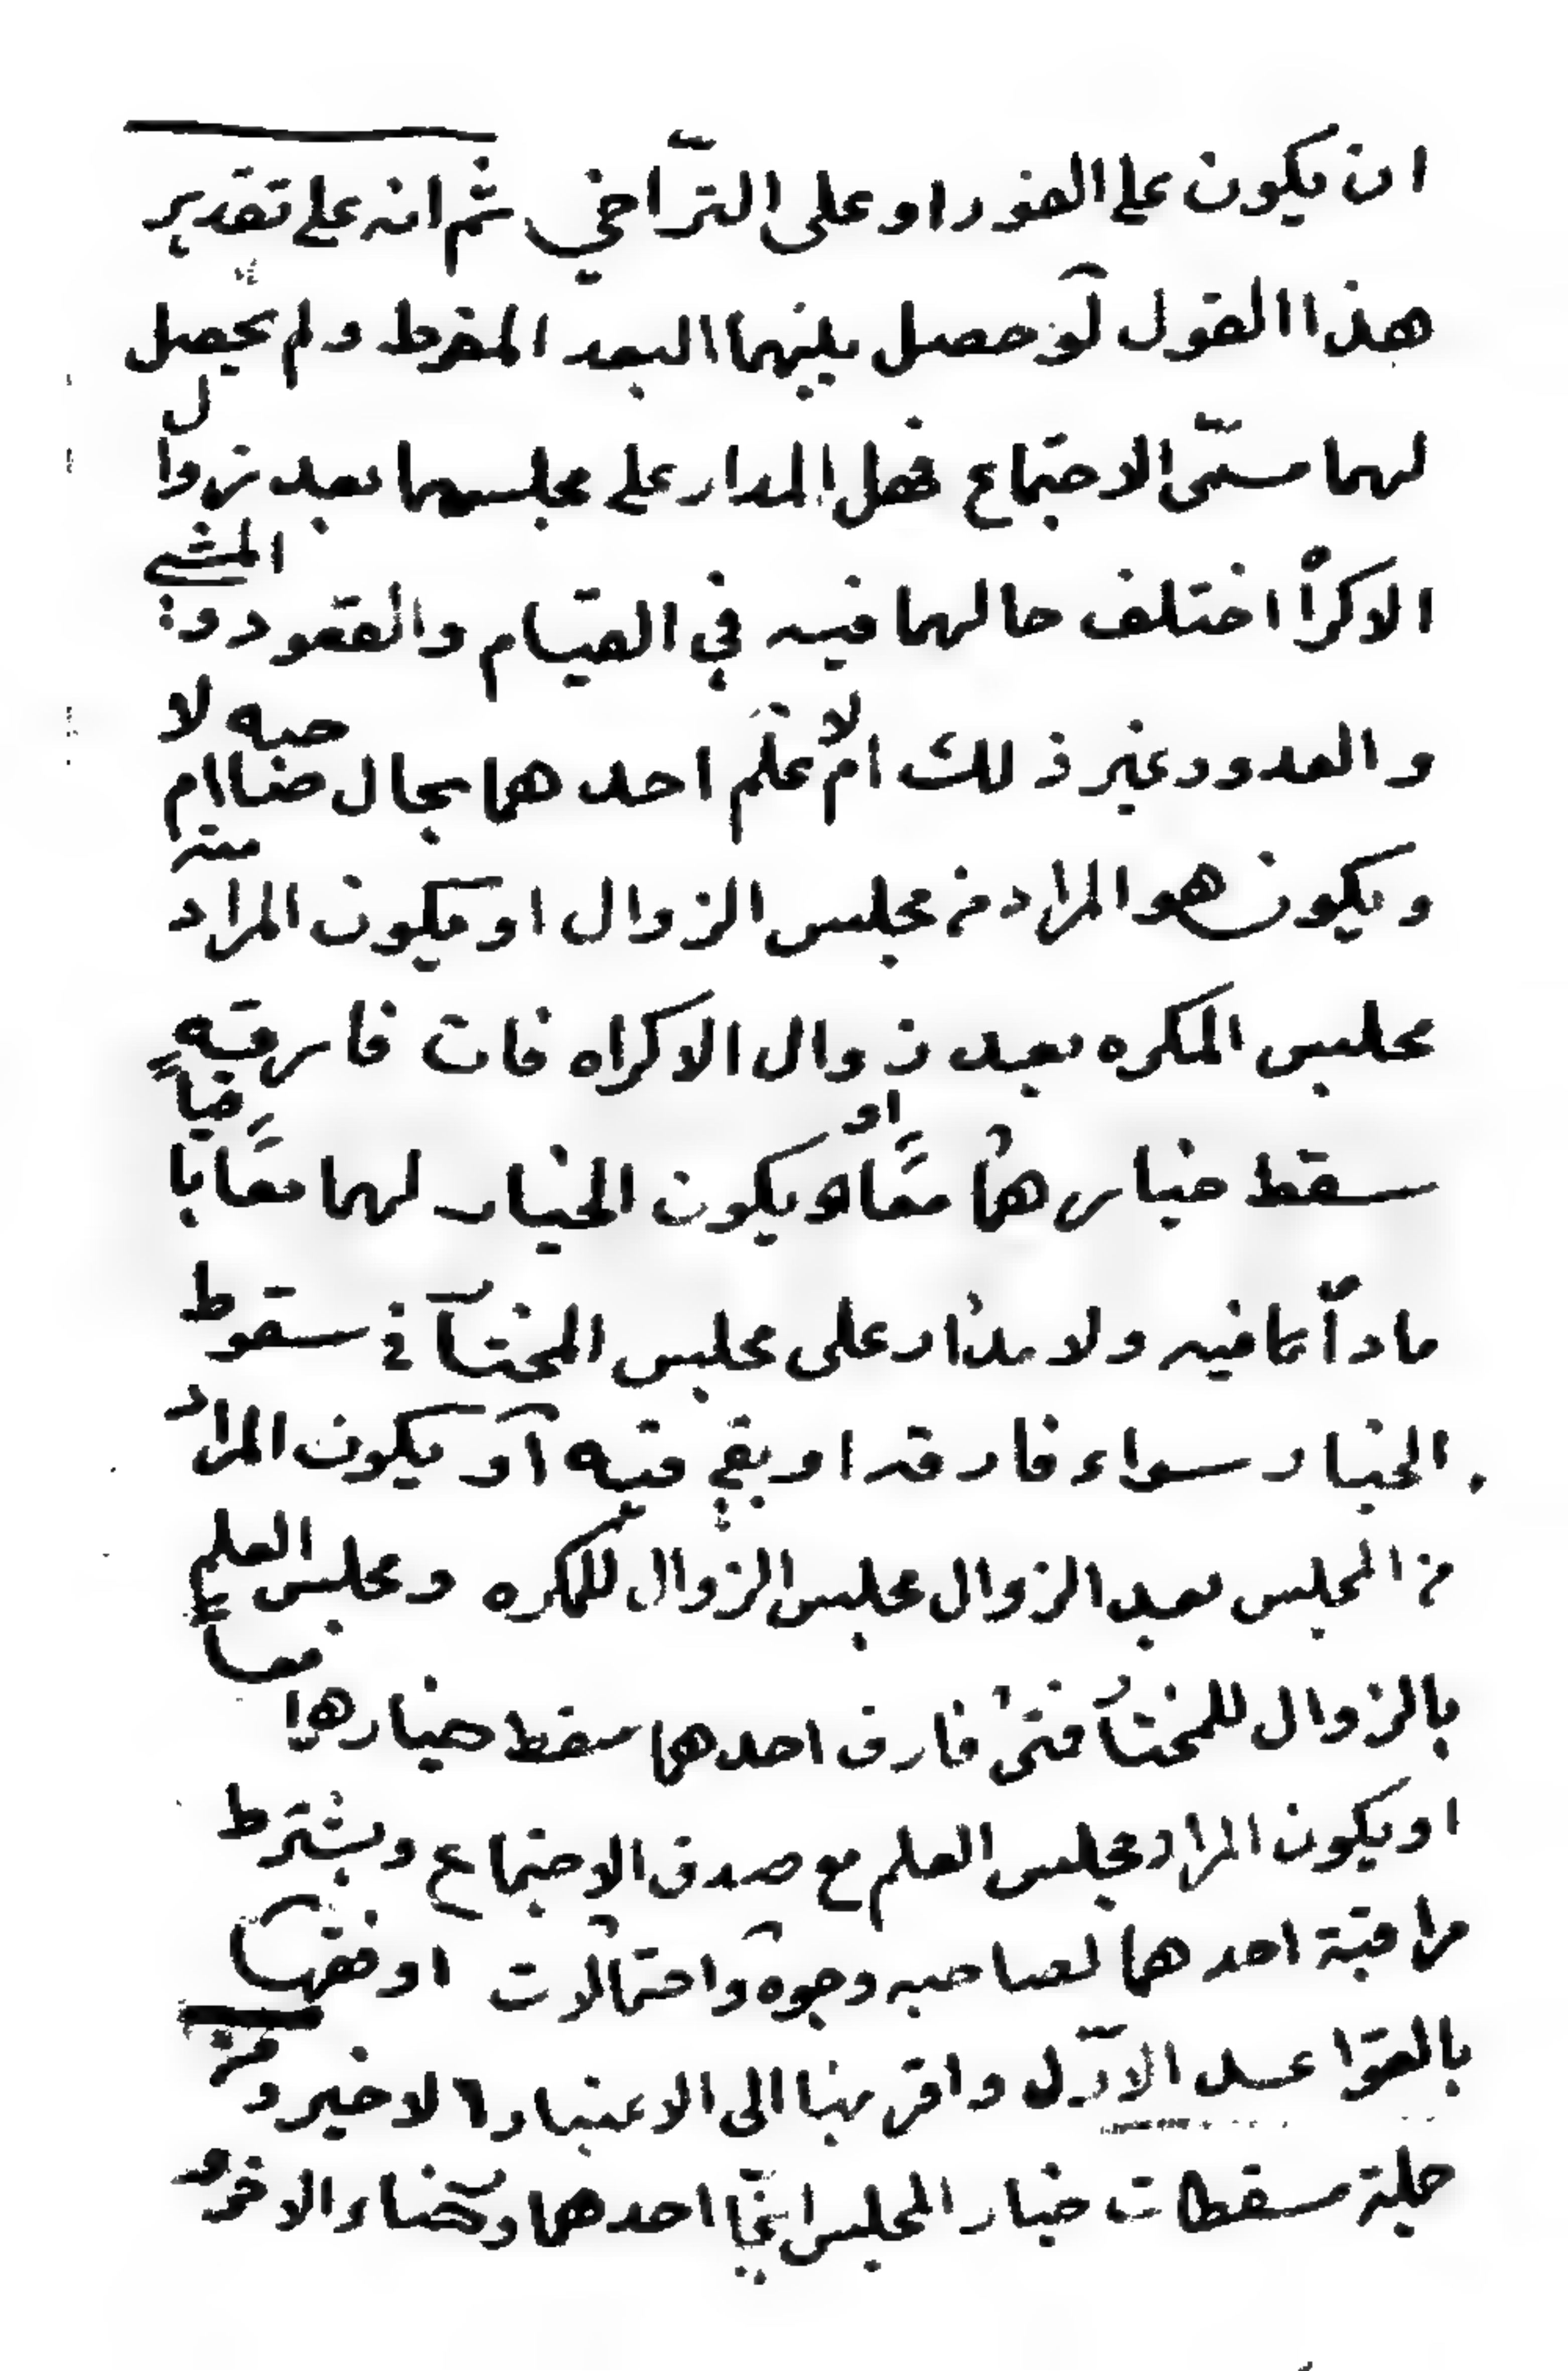 ان يكون على الفور او على التّراخي ثم انه على تقدير
هذا القول لو حصل بينهما البعد المفرط ولم يحصل
لهما مسمّى الاجتماع فهل المدار على مجلسهما بعد زوال
الاكراه اختلف حالهما فيه في القيام والقعود والمشي
والعدو وغير ذلك ام لا علم احدهما بحال صاحبه ام لا
ويكون هو المراد من مجلس الزوال او يكون المراد منه
مجلس المكره بعد زوال الاكراه فان فارقه
سقط خيارهما معًا او يكون الخيار لهما معًا باقياً
ما داما فيه ولا مدار على مجلس المختار في سقوط
الخيار سواء فارقه او بقي فيه او يكون المراد
من المجلس بعد الزوال مجلس الزوال للمكره ومجلس العلم
بالزوال للمختار فمتى فارق احدهما سقط خيارهما معاً
او يكون المراد مجلس العلم مع صدق الاجتماع ويشترط
مراقبة احدهما لصاحبه وجوه واحتمالات اوفقها
بالقواعد الاوّل واقربها الى الاعتبار الاخير ومن
جملة مسقطات خيار المجلس ايجاب احدهما ورضاء الاخر